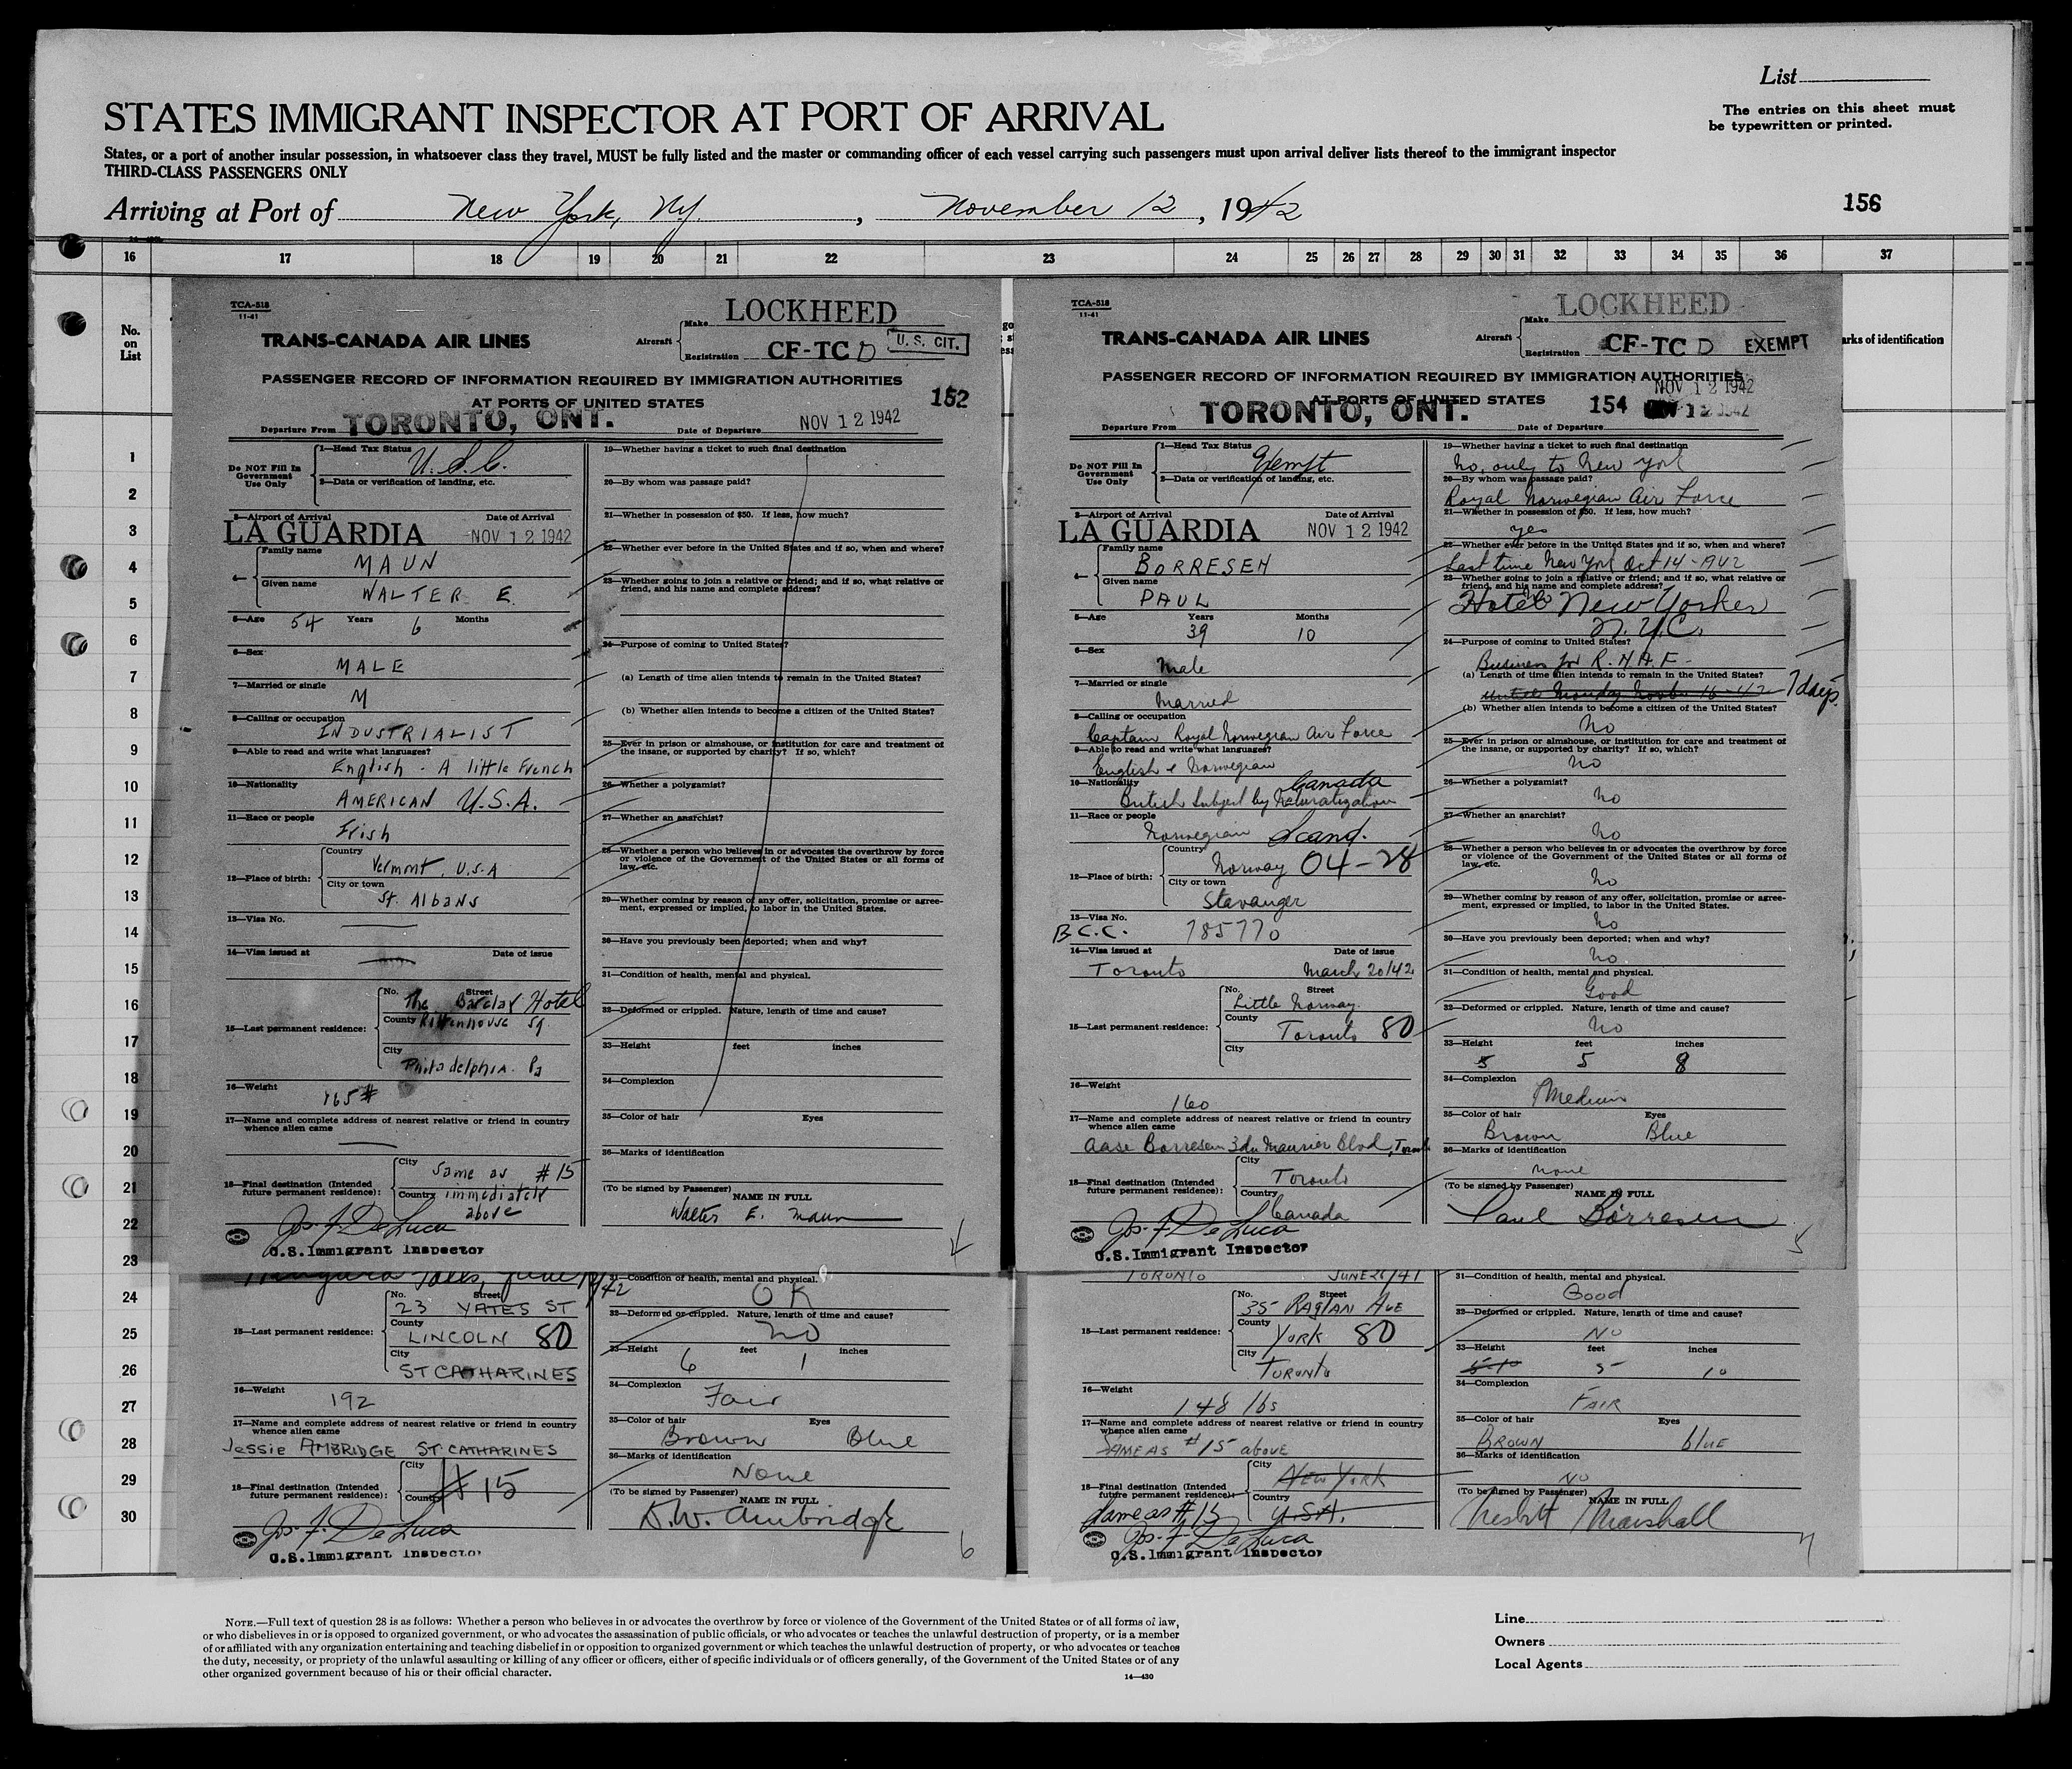 List
STATES IMMIGRANT INSPECTOR AT PORT OF ARRIVAL
The entries on this sheet must
be typewritten or printed.
States, or a port of another insular possession, in whatsoever class they travel, MUST be fully listed and the master or commanding officer of each vessel carrying such passengers must upon arrival deliver lists thereof to the immigrant inspector
THIRD-CLASS PASSENGERS ONLY
Arriving at Port of New York, NY. , November 12, 1942
156
16 17 18 19 20 21 22 23 24 25 26 27 28 29 30 31 32 33 34 35 36 37
No.
on
List
arks of identification
1
2
3
4
5
6
7
8
9
10
11
12
13
14
15
16
17
18
19
20
21
22
23
24
25
26
27
28
29
30
TCA-518
11-41
LOCKHEED
Make
TRANS-CANADA AIR LINES
Aircraft
Registration CF-TC D
U. S. CIT.
PASSENGER RECORD OF INFORMATION REQUIRED BY IMMIGRATION AUTHORITIES
AT PORTS OF UNITED STATES
152
Departure From TORONTO, ONT. Date of Departure NOV 12 1942
Do NOT Fill In
Government
Use Only
1—Head Tax Status U.S.C.
2—Data or verification of landing, etc.
3—Airport of Arrival Date of Arrival
LA GUARDIA NOV 12 1942
4—
Family name
MAUN
Given name
WALTER E.
5—Age 54 Years 6 Months
6—Sex
MALE
7—Married or single
M
8—Calling or occupation
INDUSTRIALIST
9—Able to read and write what languages?
English - A little French
10—Nationality
AMERICAN U.S.A.
11—Race or people
Irish
12—Place of birth:
Country
Vermont, U.S.A
City or town
St. Albans
13—Visa No.
14—Visa issued at Date of issue
15—Last permanent residence:
No. Street
The Barclay Hotel
County Rittenhouse Sq
City
Philadelphia. Pa
16—Weight
165#
17—Name and complete address of nearest relative or friend in country
whence alien came
18—Final destination (Intended
future permanent residence):
City
Same as #15
Country immediately
above
Jos. F. De Luca
U.S. Immigrant Inspector
19—Whether having a ticket to such final destination
20—By whom was passage paid?
21—Whether in possession of $50. If less, how much?
22—Whether ever before in the United States and if so, when and where?
23—Whether going to join a relative or friend; and if so, what relative or
friend, and his name and complete address?
24—Purpose of coming to United States?
(a) Length of time alien intends to remain in the United States?
(b) Whether alien intends to become a citizen of the United States?
25—Ever in prison or almshouse, or institution for care and treatment of
the insane, or supported by charity? If so, which?
26—Whether a polygamist?
27—Whether an anarchist?
28—Whether a person who believes in or advocates the overthrow by force
or violence of the Government of the United States or all forms of
law, etc.
29—Whether coming by reason of any offer, solicitation, promise or agree-
ment, expressed or implied, to labor in the United States.
30—Have you previously been deported; when and why?
31—Condition of health, mental and physical.
32—Deformed or crippled. Nature, length of time and cause?
33—Height feet inches
34—Complexion
35—Color of hair Eyes
36—Marks of identification
(To be signed by Passenger)
NAME IN FULL
Walter E. Maun
TCA-518
11-41
LOCKHEED
Make
TRANS-CANADA AIR LINES
Aircraft
Registration CF-TC D EXEMPT
PASSENGER RECORD OF INFORMATION REQUIRED BY IMMIGRATION AUTHORITIES
NOV 12 1942
AT PORTS OF UNITED STATES
154
Departure From TORONTO, ONT. Date of Departure NOV 12 1942
Do NOT Fill In
Government
Use Only
1—Head Tax Status
Exempt
2—Data or verification of landing, etc.
3—Airport of Arrival Date of Arrival
LA GUARDIA NOV 12 1942
4—
Family name
BORRESEN
Given name
PAUL
5—Age Years Months
39 10
6—Sex
Male
7—Married or single
Married
8—Calling or occupation
Captain Royal Norwegian Air Force
9—Able to read and write what languages?
English & Norwegian
10—Nationality Canada
British Subject by Naturalization
11—Race or people
Norwegian Scand.
12—Place of birth:
Country
Norway 04-28
City or town
Stavanger
13—Visa No.
B.C.C. 785770
14—Visa issued at Date of issue
Toronto March 20/42
15—Last permanent residence:
No. Street
Little Norway
County
Toronto 80
City
16—Weight
160
17—Name and complete address of nearest relative or friend in country
whence alien came
Aase Borresen 3 du Maurier Blvd, Toronto
18—Final destination (Intended
future permanent residence):
City
Toronto
Country
Canada
Jos. F. De Luca
U.S. Immigrant Inspector
19—Whether having a ticket to such final destination
No, only to New York
20—By whom was passage paid?
Royal Norwegian Air Force
21—Whether in possession of $50. If less, how much?
yes
22—Whether ever before in the United States and if so, when and where?
Last time New York Oct 14-1942
23—Whether going to join a relative or friend; and if so, what relative or
friend, and his name and complete address?
No
Hotel New Yorker
N.Y.C.
24—Purpose of coming to United States?
Business for R.N.A.F-
(a) Length of time alien intends to remain in the United States?
until Monday Novbr 16-42 7 days.
(b) Whether alien intends to become a citizen of the United States?
No
25—Ever in prison or almshouse, or institution for care and treatment of
the insane, or supported by charity? If so, which?
No
26—Whether a polygamist?
No
27—Whether an anarchist?
No
28—Whether a person who believes in or advocates the overthrow by force
or violence of the Government of the United States or all forms of
law, etc.
No
29—Whether coming by reason of any offer, solicitation, promise or agree-
ment, expressed or implied, to labor in the United States.
No
30—Have you previously been deported; when and why?
No
31—Condition of health, mental and physical.
Good
32—Deformed or crippled. Nature, length of time and cause?
No
33—Height feet inches
5 5 8
34—Complexion
Medium
35—Color of hair Eyes
Brown Blue
36—Marks of identification
None
(To be signed by Passenger)
NAME IN FULL
Paul Börresen
5
Niagara Falls, June 19/42
15—Last permanent residence:
No. Street
23 YATES ST
County
LINCOLN 80
City
ST CATHARINES
16—Weight
192
17—Name and complete address of nearest relative or friend in country
whence alien came
Jessie AMBRIDGE ST. CATHARINES
18—Final destination (Intended
future permanent residence):
City
Country
#15
Jos. F. De Luca
U.S. Immigrant Inspector
31—Condition of health, mental and physical.
OK
32—Deformed or crippled. Nature, length of time and cause?
no
33—Height feet inches
6 1
34—Complexion
Fair
35—Color of hair Eyes
Brown Blue
36—Marks of identification
None
(To be signed by Passenger)
NAME IN FULL
D.W. Ambridge
6
TORONTO JUNE 26/41
15—Last permanent residence:
No. Street
35 RAGLAN AVE
County
YORK 80
City
TORONTO
16—Weight
148 lbs
17—Name and complete address of nearest relative or friend in country
whence alien came
SAME AS #15 above
18—Final destination (Intended
future permanent residence):
City
New York
Country
Same as #15 U.S.A.
Jos. F. De Luca
U.S. Immigrant Inspector
31—Condition of health, mental and physical.
Good
32—Deformed or crippled. Nature, length of time and cause?
No
33—Height feet inches
5-10 5 10
34—Complexion
FAIR
35—Color of hair Eyes
BROWN blUE
36—Marks of identification
NO
(To be signed by Passenger)
NAME IN FULL
Nesbitt Marshall
7
NOTE.—Full text of question 28 is as follows: Whether a person who believes in or advocates the overthrow by force or violence of the Government of the United States or of all forms of law,
or who disbelieves in or is opposed to organized government, or who advocates the assassination of public officials, or who advocates or teaches the unlawful destruction of property, or is a member
of or affiliated with any organization entertaining and teaching disbelief in or opposition to organized government or which teaches the unlawful destruction of property, or who advocates or teaches
the duty, necessity, or propriety of the unlawful assaulting or killing of any officer or officers, either of specific individuals or of officers generally, of the Government of the United States or of any
other organized government because of his or their official character.
14—430
Line
Owners
Local Agents